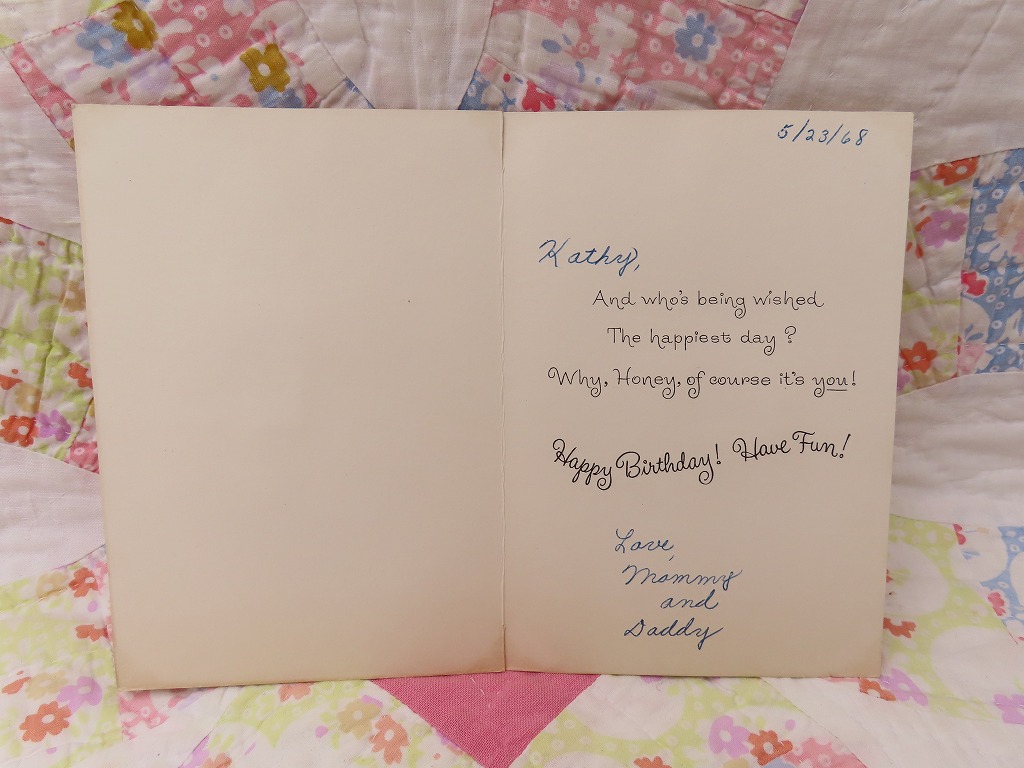 5/23/68
Kathy,
And who's being wished
The happiest day?
Why, Honey, of course it's you!
Happy Birthday! Have Fun!
Love,
Mommy
and
Daddy